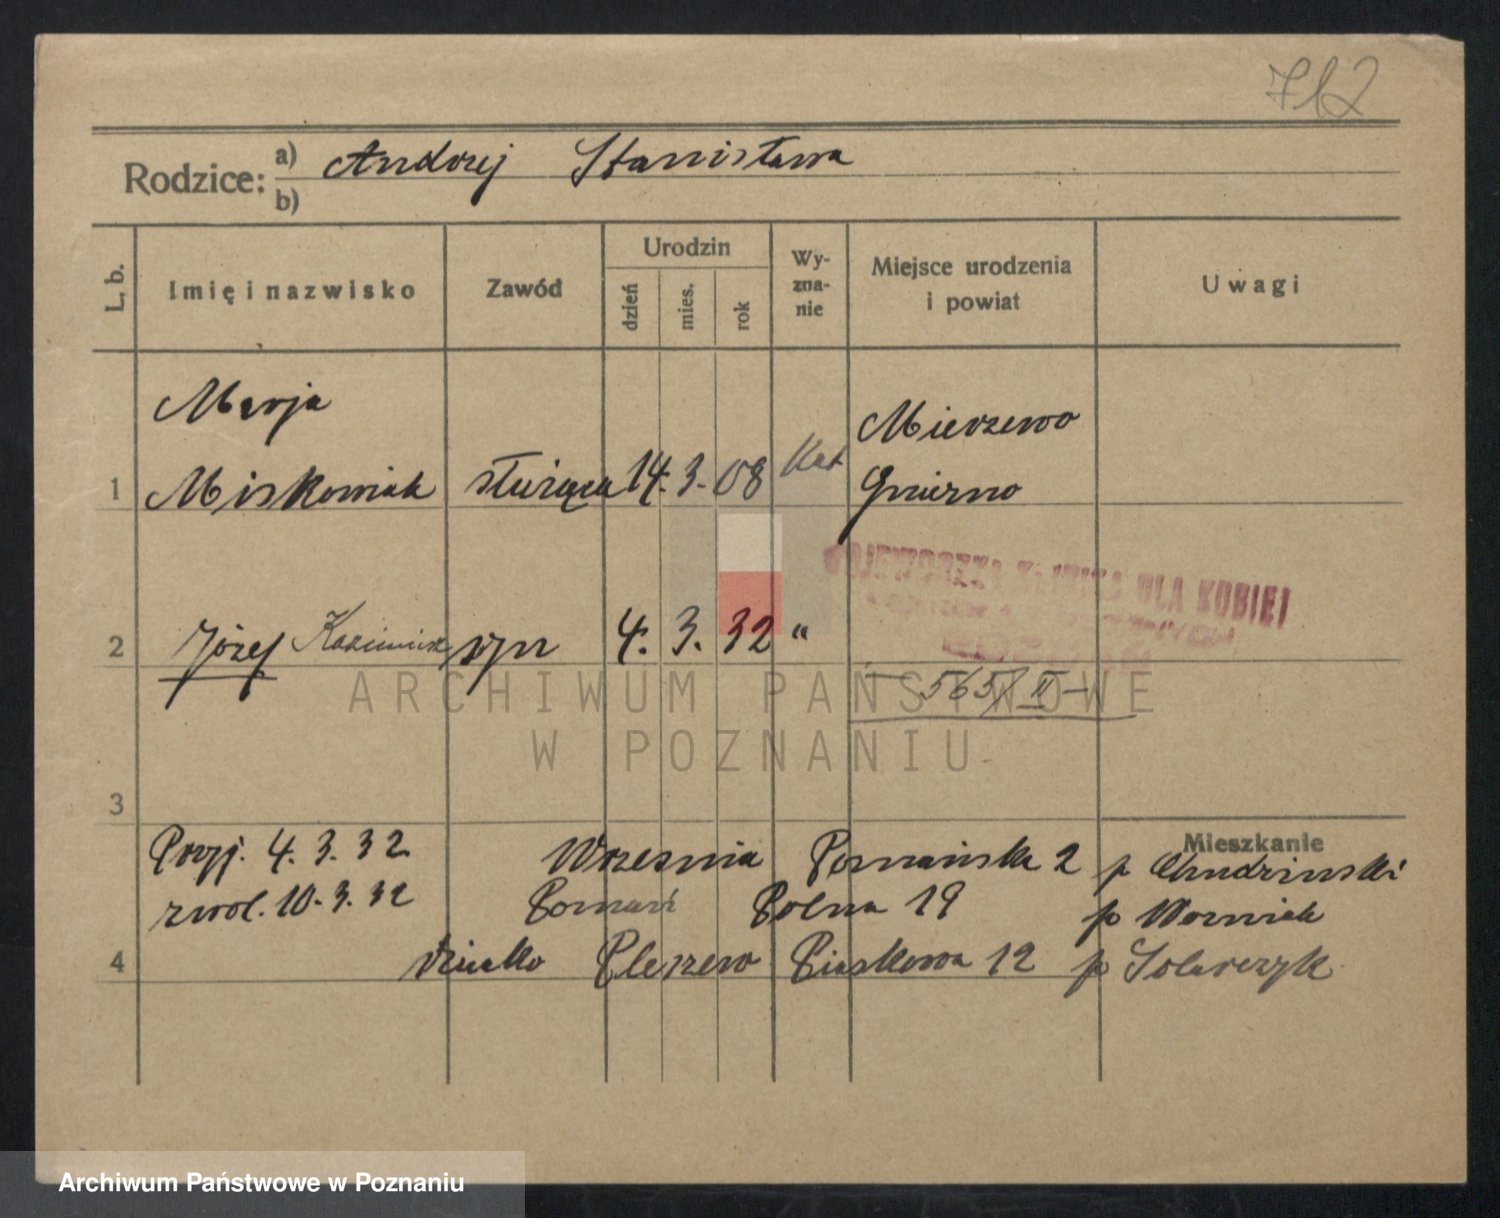 712
Rodzice: a) Andrzej Stanisława
b)
L. b. Imię i nazwisko Zawód Urodzin dzień mies. rok Wy-zna-nie Miejsce urodzenia i powiat Uwagi
Marja Mierzewo
1 Miskowiak służąca 14. 3. 08 Kat Gniezno
WOJEWÓDZKA KLINIKA DLA KOBIET
2 Józef Kazimierz syn 4. 3. 32 "
565/II
ARCHIWUM PAŃSTWOWE
W POZNANIU
3
Mieszkanie
Przyj. 4. 3. 32 Wrzesnia Poznańska 2 p Chudzinski
zwol. 10. 3. 32 Poznań Polna 19 p Wozniak
4 dziecko Pleszew Piaskowa 12 p Solarczyk
Archiwum Państwowe w Poznaniu